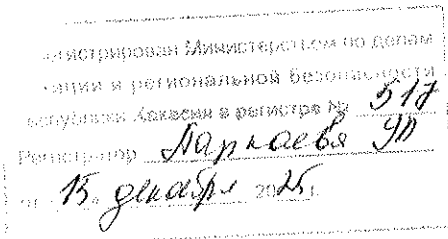 егистрирован Министерством по делам
ции и региональной безопасности
еспублики Хакасия в регистре № 517
Регистратор
от "15" декабря 2025 г.